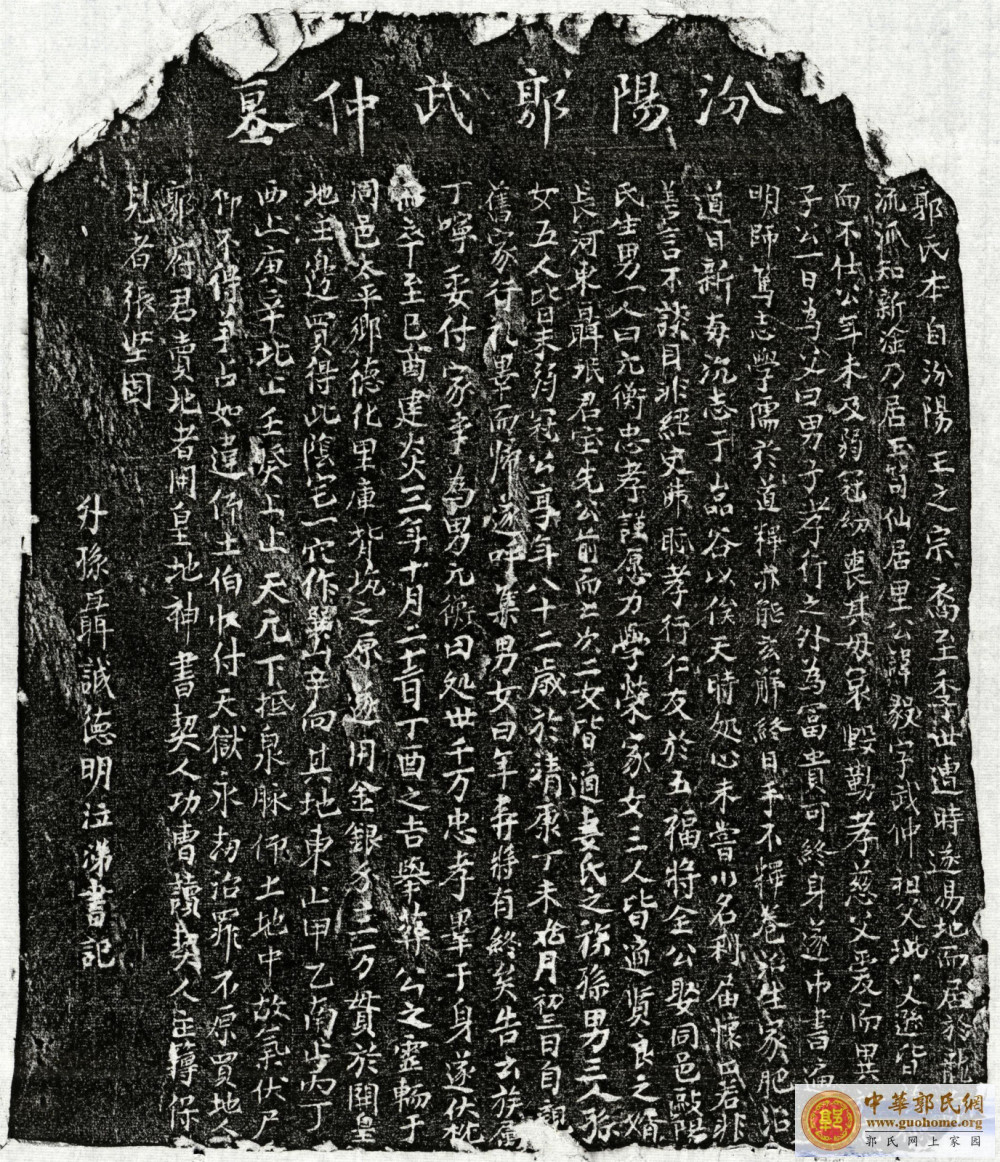 汾陽郭武仲墓
郭氏本自汾陽王之宗裔至季世遭時遂易地而居於
流派知新淦乃居玉笥仙居里公諱毅字武仲祖父玭父遜皆
而不仕公年未及弱冠幼喪其母哀毀勤孝慈父爱而異
子公一日為父曰男子孝行之外為冨貴可終身遂市書
明師篤志學儒於道釋亦能玄解終日手不釋卷治生家肥
道日新每沉志于嵓谷以俟天時处心未嘗以名利届懷若非
善言不談目非經史弗孝行仁友於五福将全公娶同邑歐陽
氏生男一人曰元衡忠孝謹愿力學榮家女三人皆適贤良之婿
長河東聶珉君宝先公前而亡次二女皆適姜氏之族孫男三人孫
女五人皆未弱冠公享年八十二歲於靖康丁未月初三日自
舊家行礼畢而㱕遂呼集男女曰年寿将有終矣告去族属
丁寧委付家事為男元衡曰处世千万忠孝畢于身遂伏枕
而卒至己酉建炎三年十月二十日丁酉之吉舉葬公之靈輀于
同邑太平鄉德化里庫背坑之原遂用金銀錢三万貫於開皇
地主邊買得此陰宅一穴作巽山辛向其地東止甲乙南止丙丁
西止庚辛北止壬癸上止天元下抵泉脉仰土地中故氣伏尸
仰不得爭占如違仰土伯收付天獄永劫治罪不原買地人
郭府君賣地者開皇地神書契人功曹讀契人主簿保
見者張坚固
外孫聶誠德明泣涕書記
中華郭氏網
www.guohome.org
郭氏网上家园